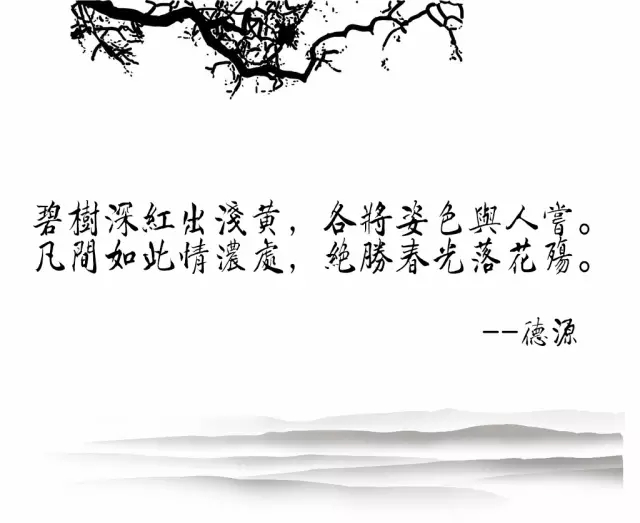 碧樹深紅出淺黄，各將姿色與人嘗。
凡間如此情濃處，絶勝春光落花殤。
--德源